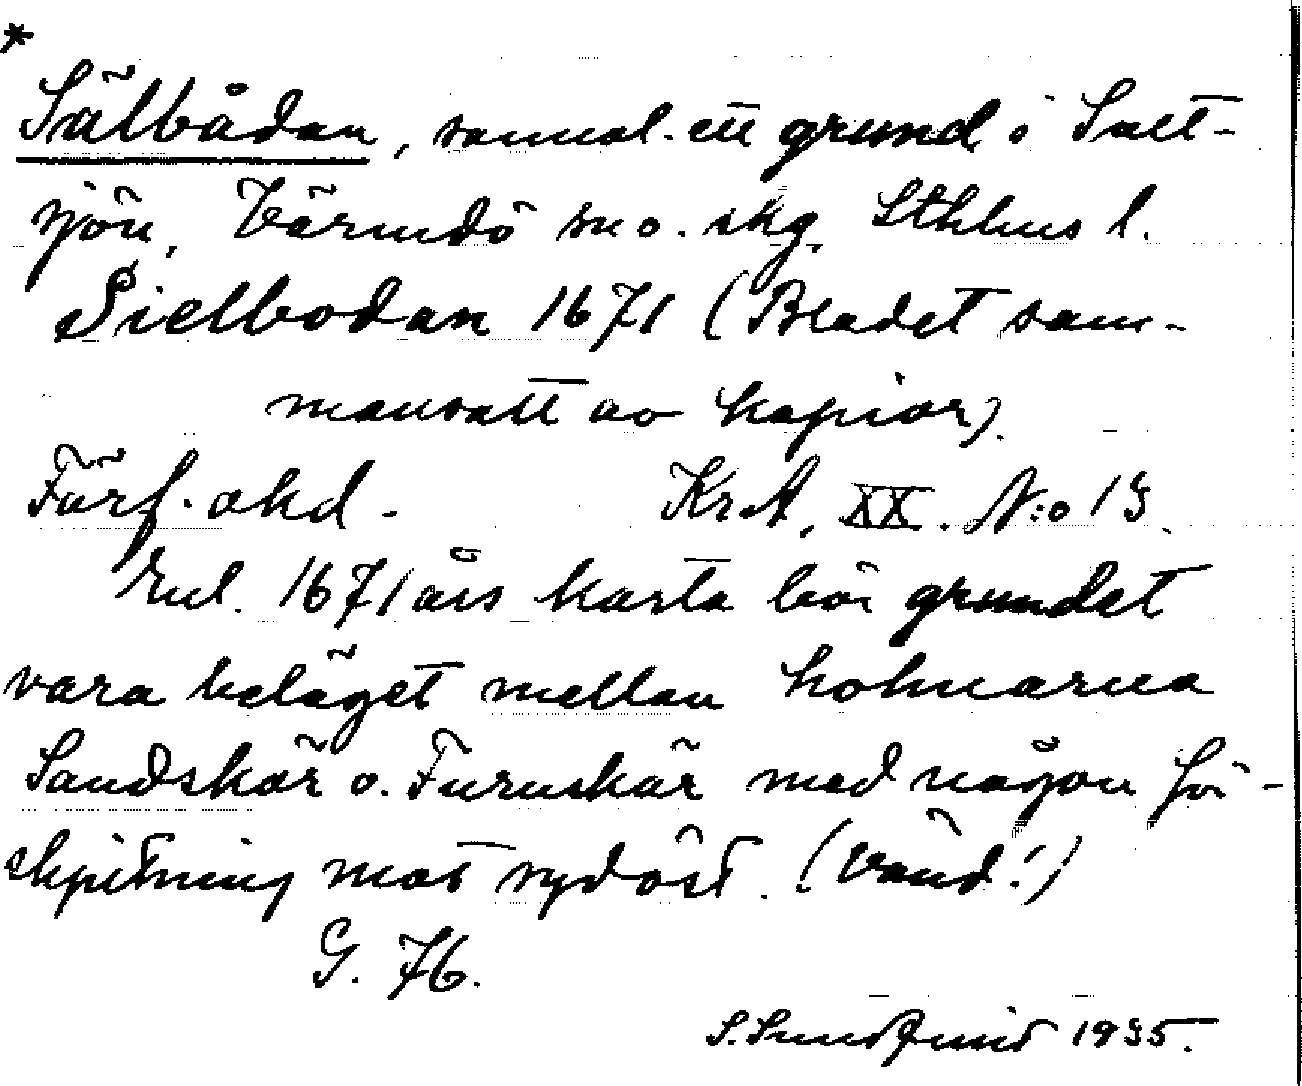 *
Sälbådan, sannol. ett grund i Salt-
sjön, Värmdö sn o. skg, Sthlms l.
Sielbodan 1671 (Bladet sam-
mansatt av kopior).
Förf. okd. - KrA, XX. N:o 13.
Enl. 1671 års karta bör grundet
vara beläget mellan holmarna
Sandskär o. Furuskär med någon för-
skjutning mot sydöst. (Vänd!)
G. 76.
1935.